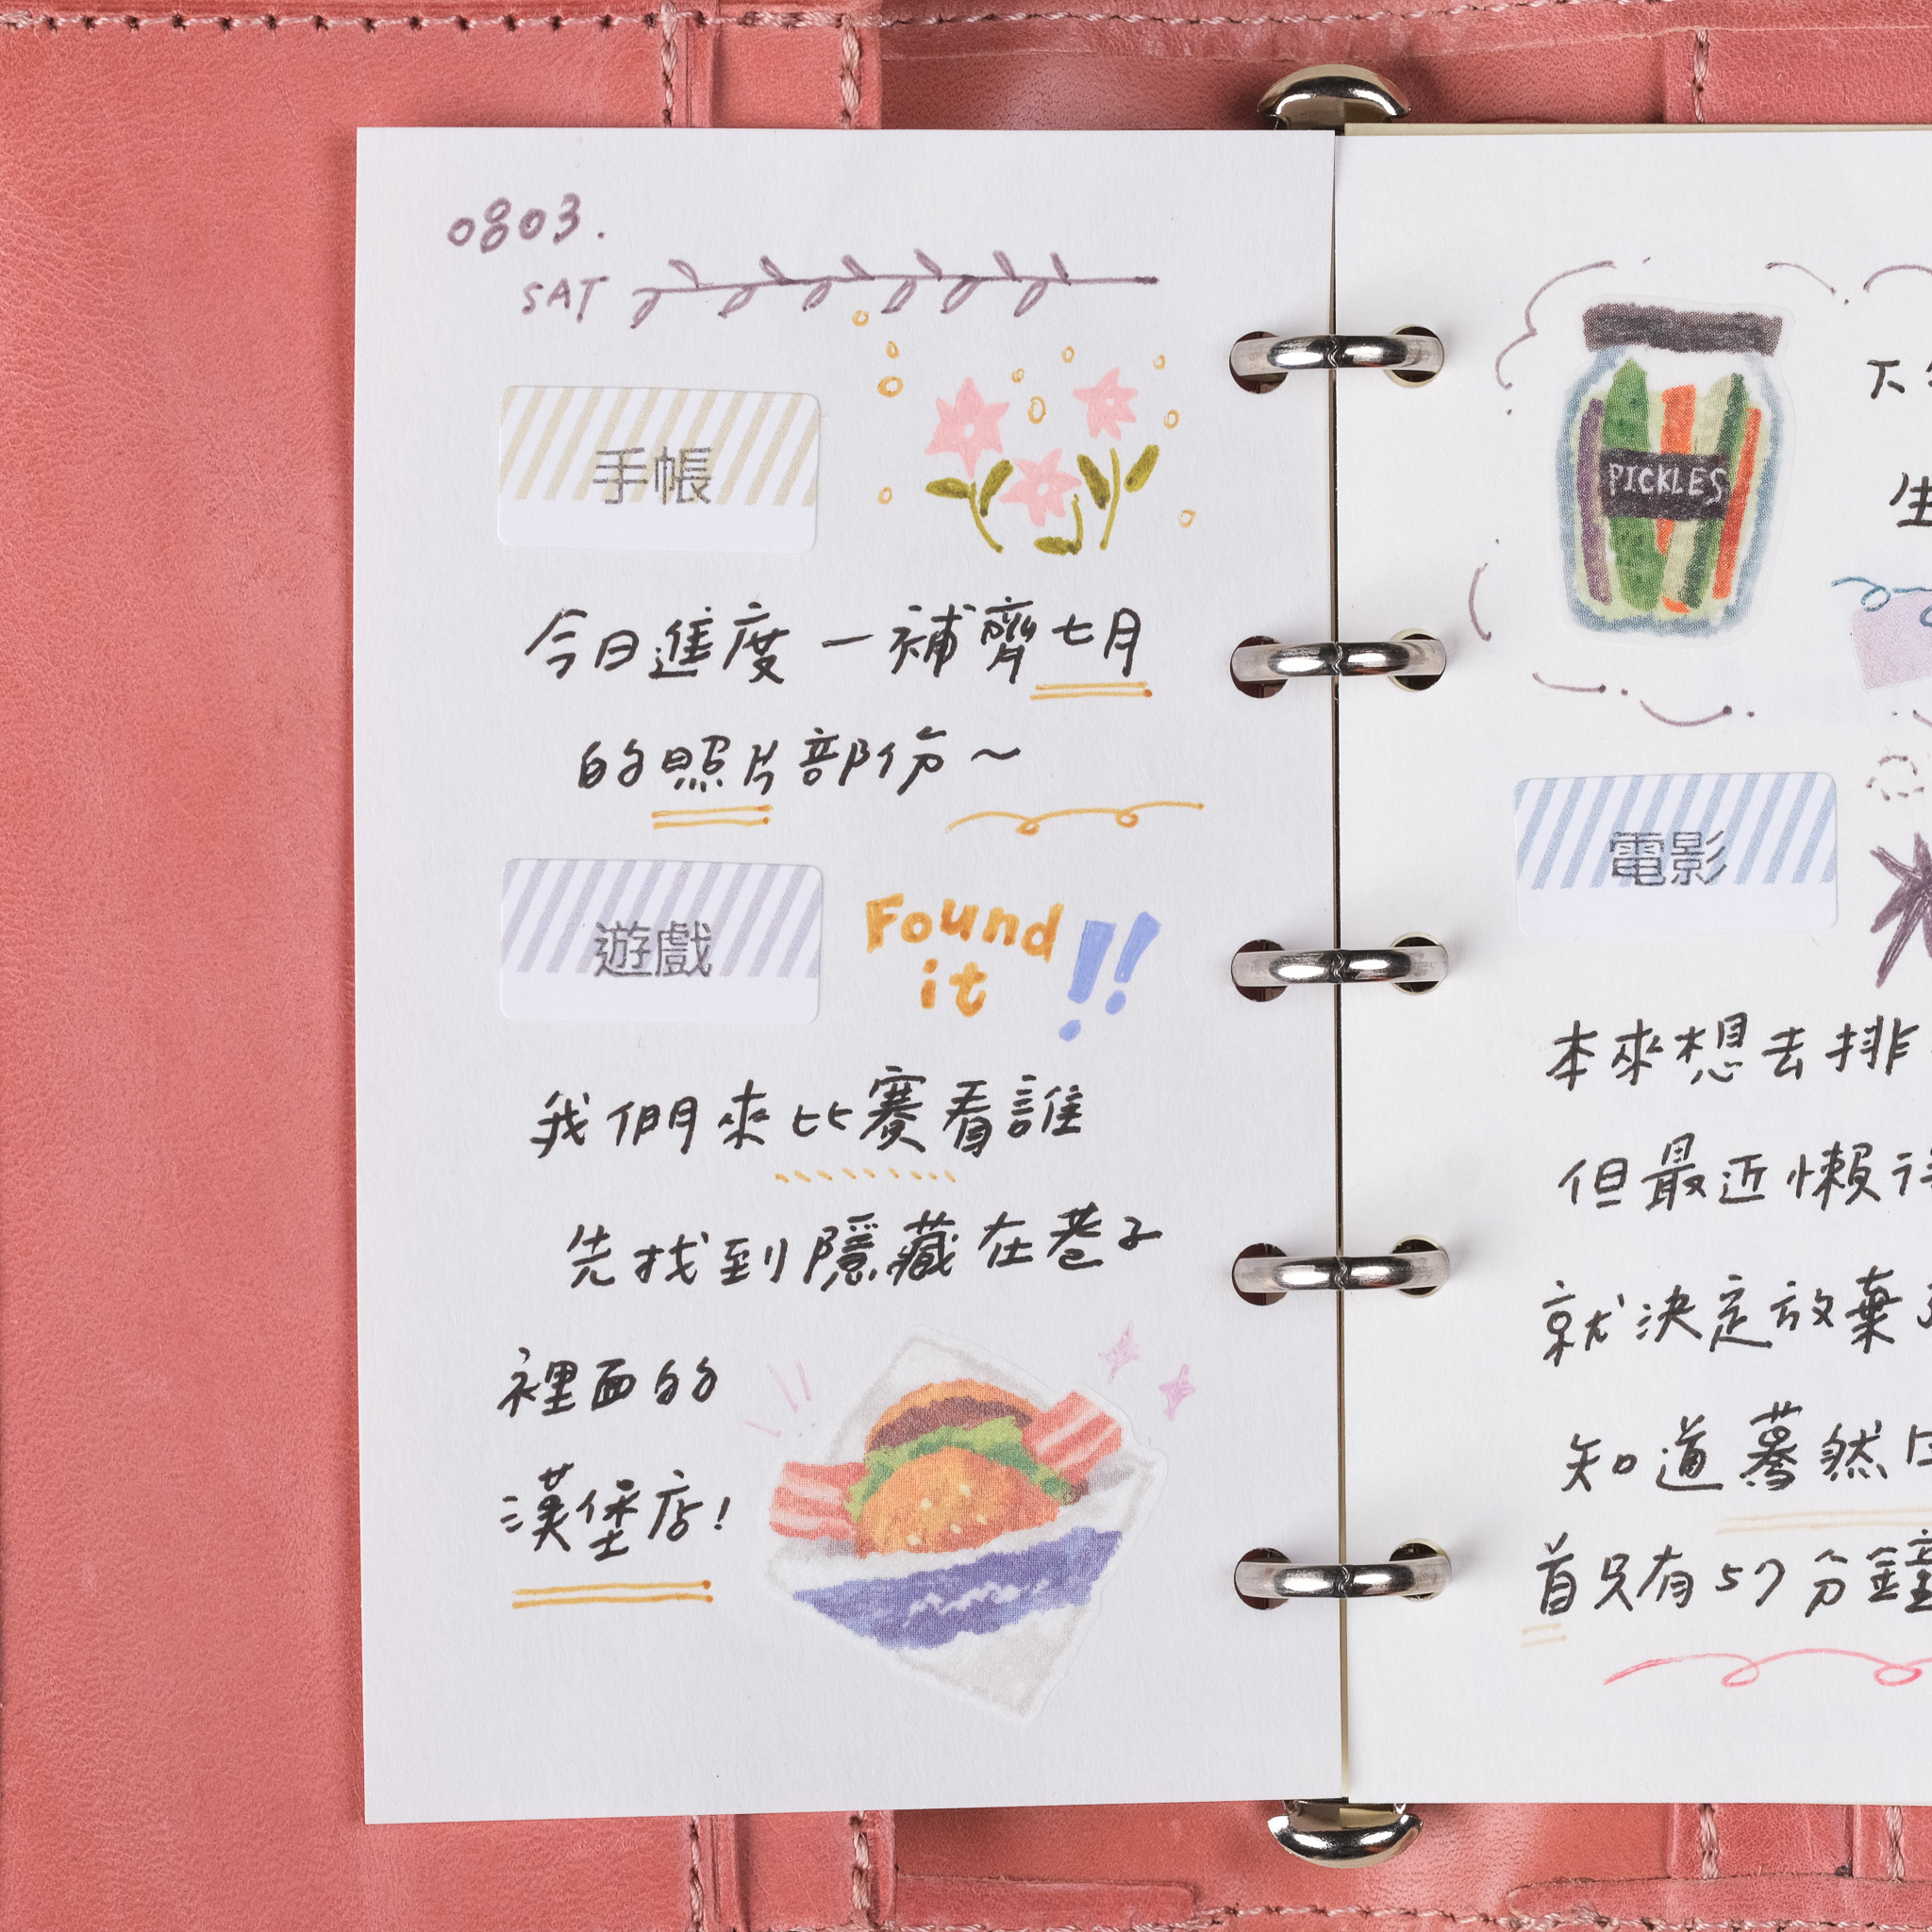 0803.
SAT
手帳
今日進度 — 補齊七月
的照片部份～
遊戲
Found
it !!
我們來比賽看誰
先找到隱藏在巷子
裡面的
漢堡店!
PICKLES
下
生
電影
本來想去排
但最近懶得
就決定放棄
知道驀然
首只有57分鐘